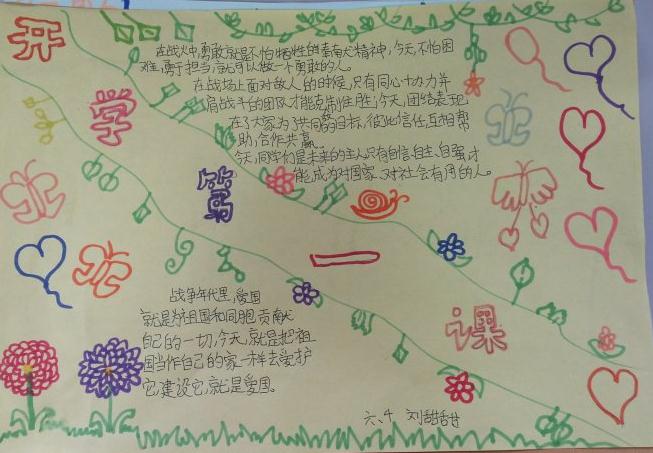 开学第一课
在战火中,勇敢就是不怕牺牲的奉献精神,今天,不怕困
难,勇于担当,就可以做一个勇敢的人。
在战场上面对敌人的时候,只有同心协力并
肩战斗的团队才能克制住胜,今天,团结表现
在了大家为了共同的目标,彼此信任互相帮
助,合作共赢。
今天,同学们是未来的主人只有自信自主、自强才
能成为对国家、对社会有用的人。
战争年代里,爱国
就是为祖国和同胞贡献
自己的一切,今天,就是把祖
国当作自己的家一样去爱护
它,建设它,就是爱国。
六、4 刘甜甜